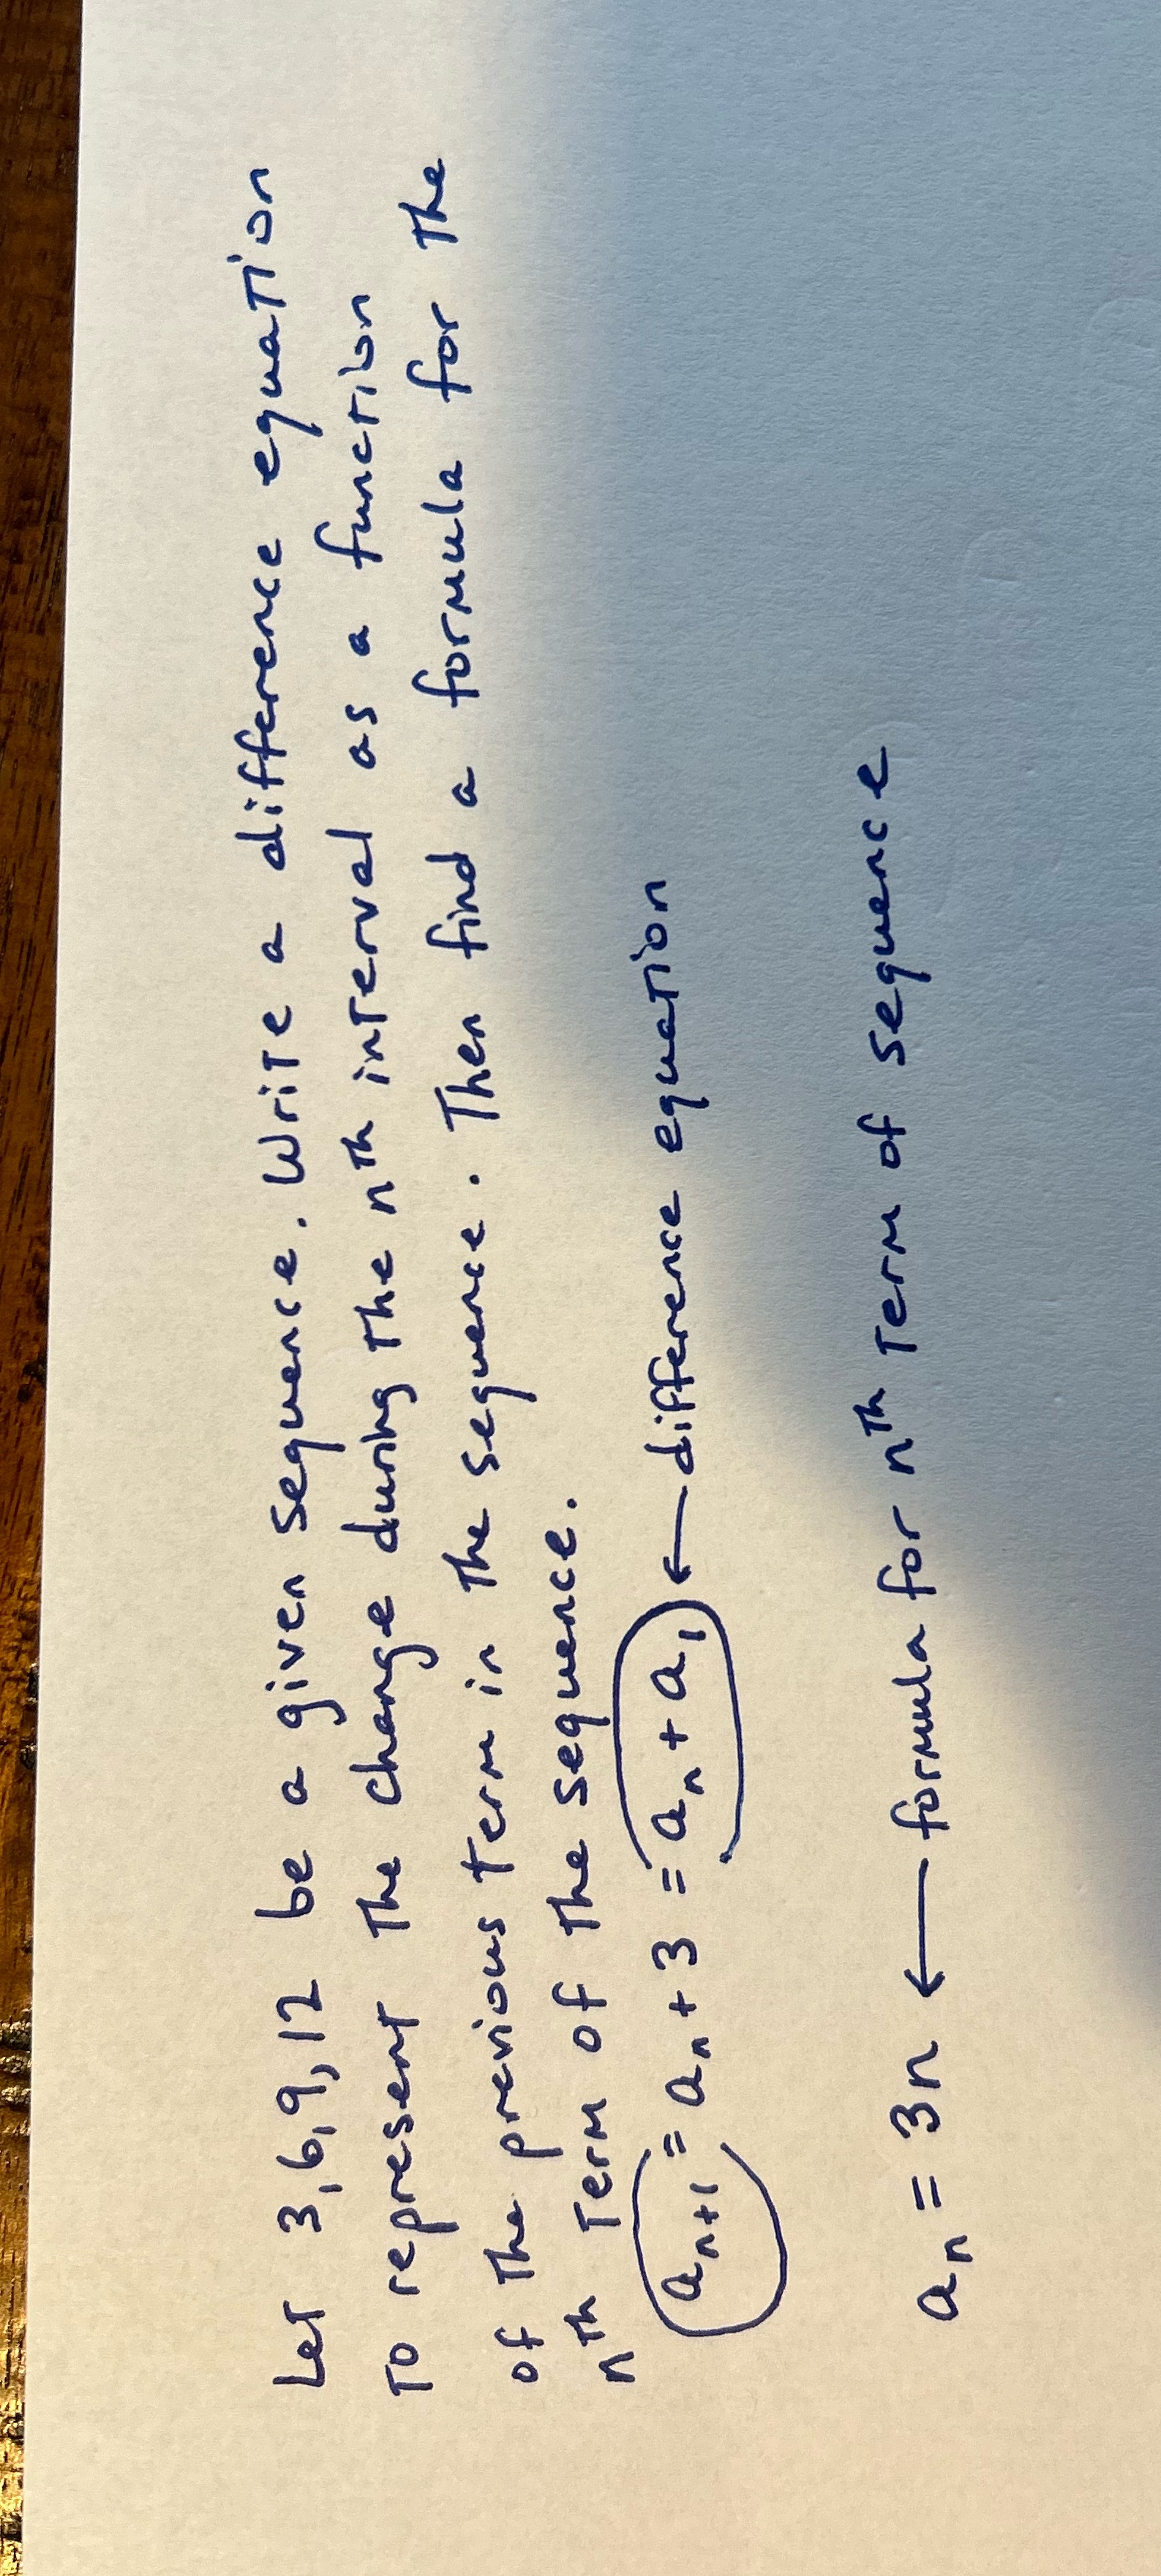 Let 3,6,9,12 be a given sequence. Write a difference equation
To represent the change during the nth interval as a function
of the previous term in the sequence. Then find a formula for the
nth Term of the sequence.
a_n+1 = a_n + 3 = a_n + a_1 ← difference equation
a_n = 3n ← formula for nth Term of sequence